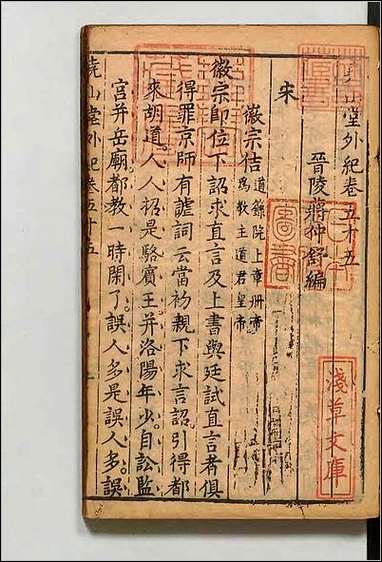 堯山堂外紀卷五十五
晉陵蔣仲舒編
宋
徽宗佶
道籙院上章冊帝
為教主道君皇帝
徽宗即位下詔求直言及上書與廷試直言者俱
得罪京師有謔詞云當初親下求言詔引得都
來胡道人人招是駱賓王并洛陽年少自訟監
宮并岳廟都教一時閑了誤人多是誤人多誤
堯山堂外紀卷五十五
淺草文庫
圖書